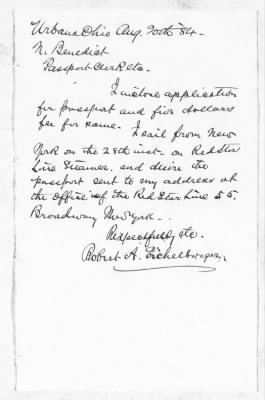 Urbana Ohio Aug. 20th 84.
N. Benedict
Passport Clerk etc.
I inclose application
for passport and five dollars
fee for same. I sail from New
York on the 28th inst. on Red Star
Line Steamer. and desire the
passport sent to my address at
the office of the Red Star Line 55.
Broadway New York.
Respectfully etc.
Robert A. Eichelberger.